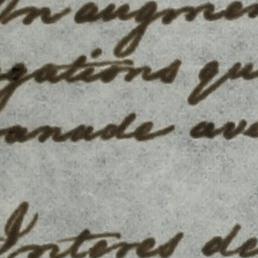 In augmen
gations qu
anade ave
Interes de